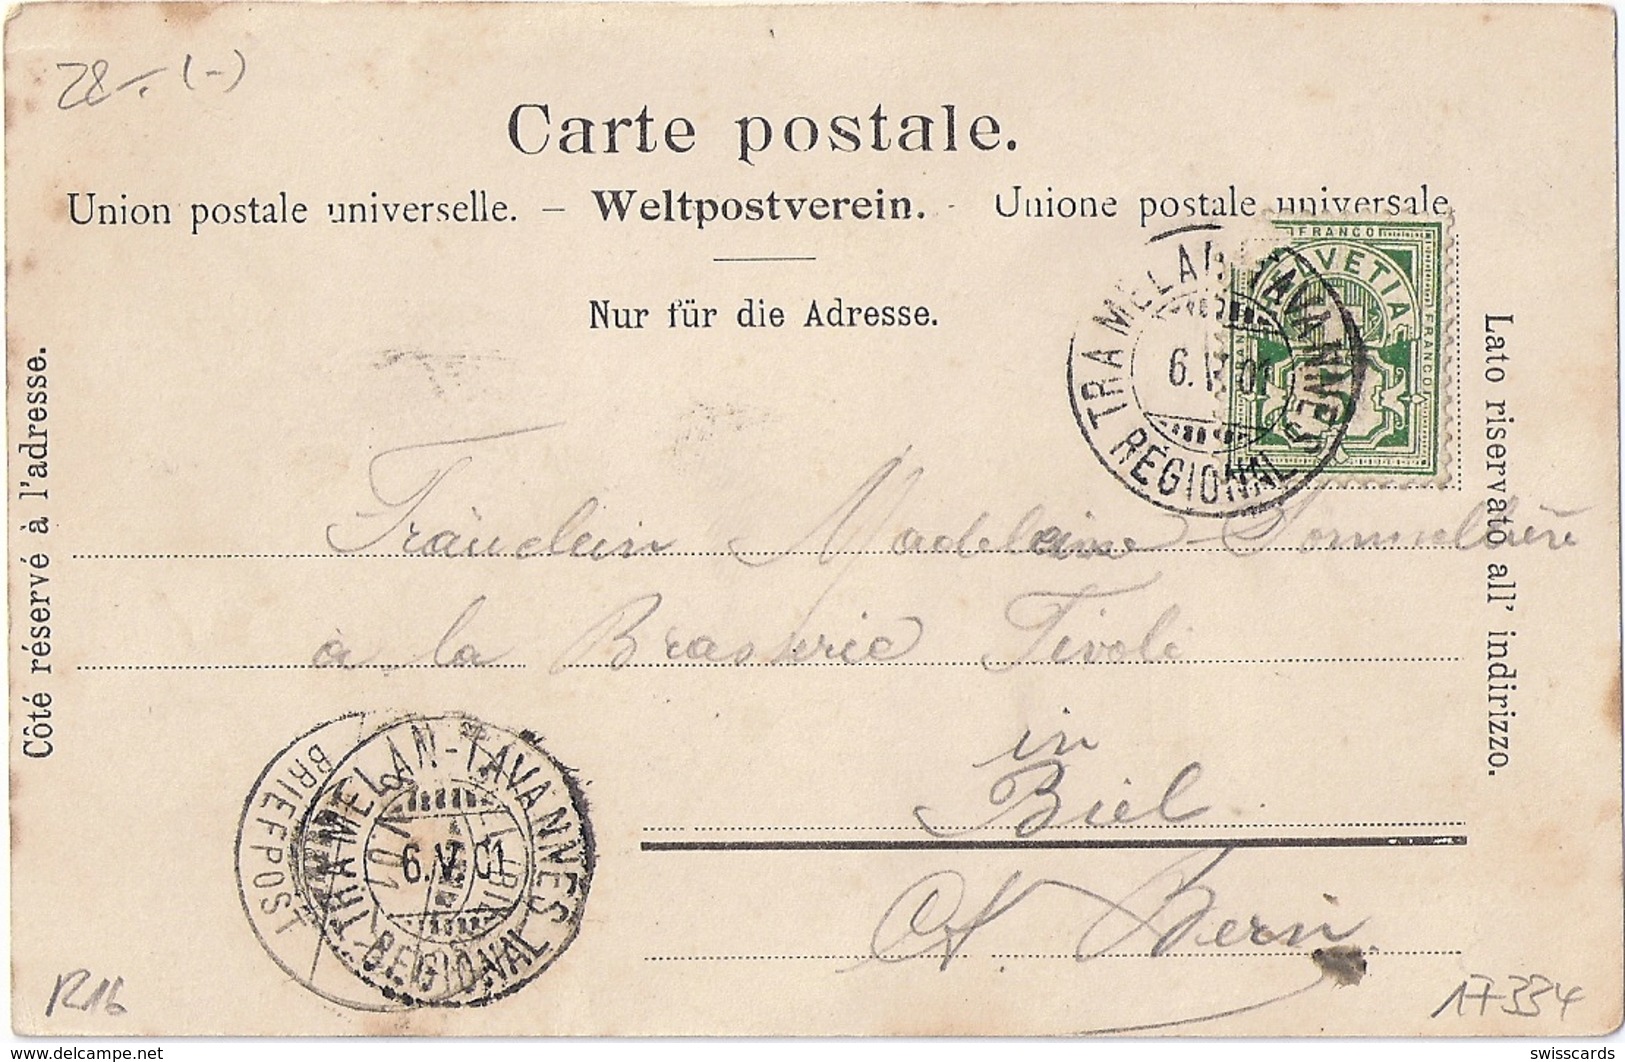 28.- (-)
Carte postale.
Union postale universelle. – Weltpostverein. - Unione postale universale
Nur für die Adresse.
Côté réservé à l'adresse.
Lato riservato all' indirizzo.
FRANCO
HELVETIA
FRANCO
TRAMELAN-TAVANNES
6.V.01
REGIONAL
Fräulein Madeleine Sommelière
à la Brasserie Tivoli
in
Biel
Ct. Bern.
TRAMELAN-TAVANNES
6.V.01
REGIONAL
BRIEFPOST
R16
17334
www.delcampe.net
swisscards